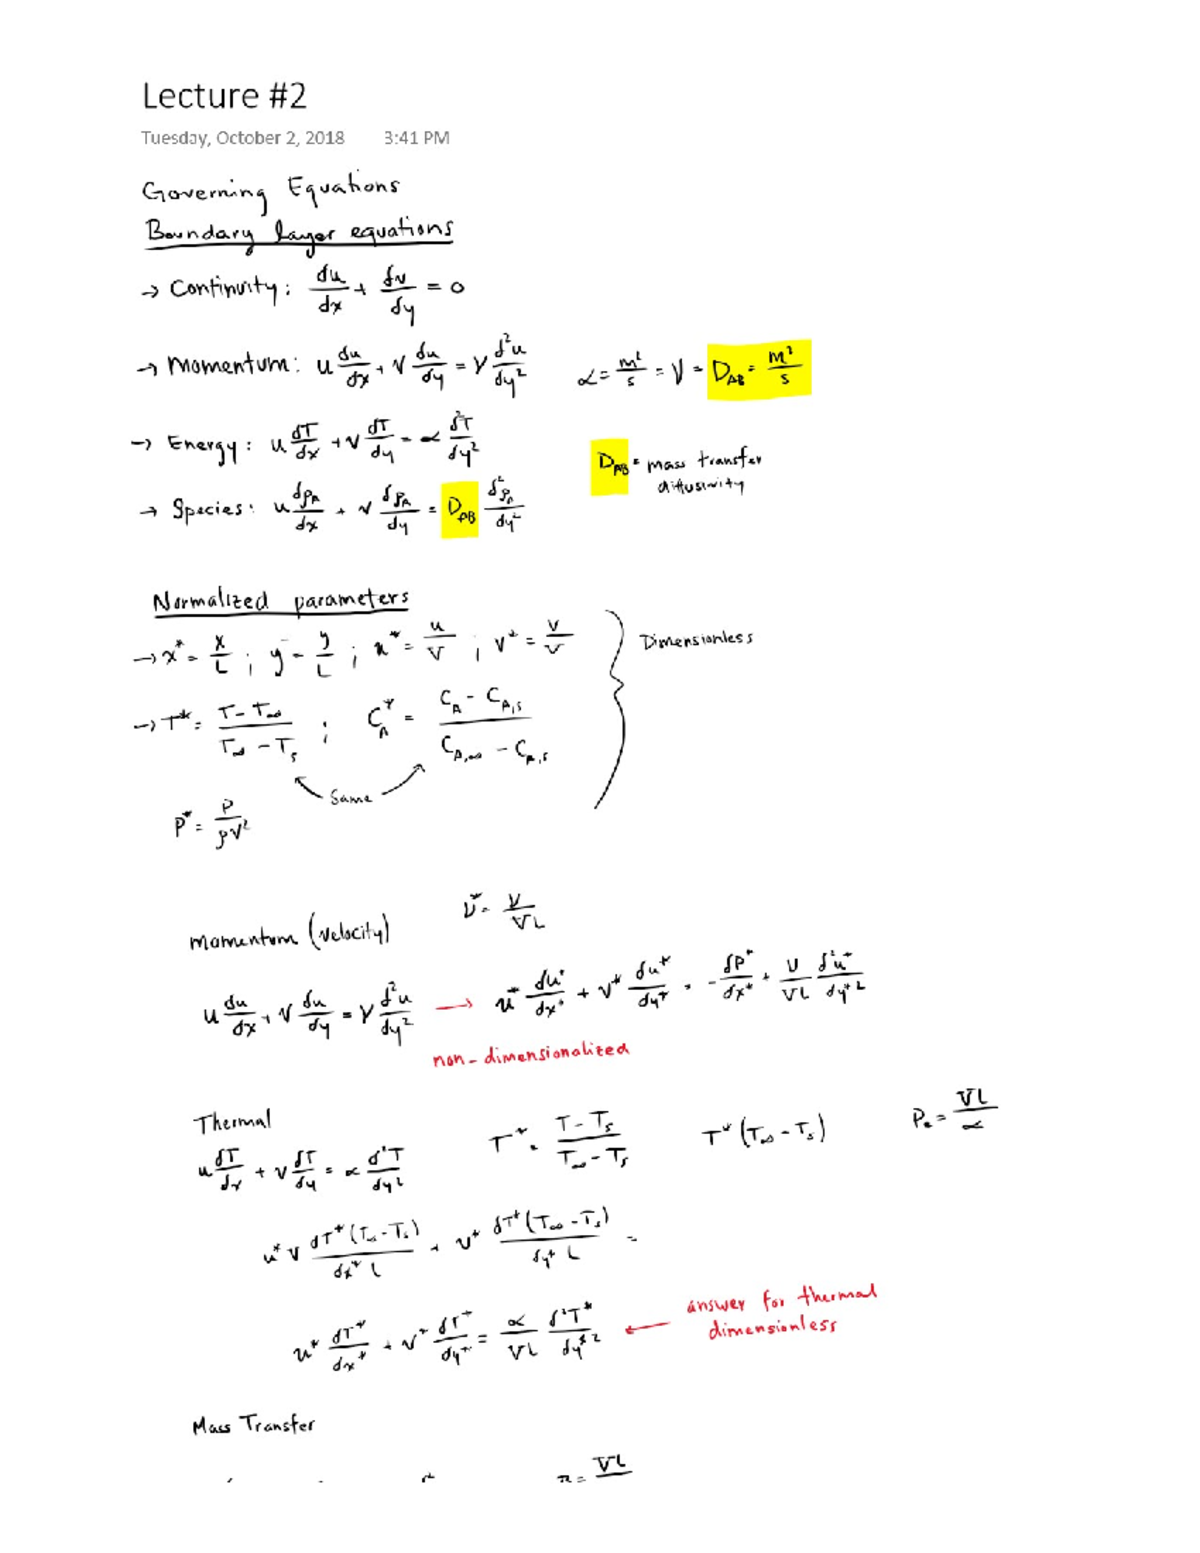 Lecture #2
Tuesday, October 2, 2018 3:41 PM
Governing Equations
Boundary layer equations
→ Continuity: du/dx + dv/dy = 0
→ Momentum: u du/dx + v du/dy = ν d²u/dy² α = m²/s = ν = D_AB = m²/s
→ Energy: u dT/dx + v dT/dy = α d²T/dy²
D_AB = mass transfer
diffusivity
→ Species: u dρ_A/dx + v dρ_A/dy = D_AB d²ρ_A/dy²
Normalized parameters
→ x* = x/L ; y = y/L ; u* = u/V ; v* = v/V Dimensionless
→ T* = T - T∞ / T∞ - T_s ; C_A* = C_A - C_A,s / C_A,∞ - C_A,s
Same
P* = P/ρV²
ν* = ν/VL
Momentum (velocity)
u du/dx + v du/dy = ν d²u/dy² → u* du*/dx* + v* du*/dy* = - dP*/dx* + ν/VL d²u*/dy*²
non-dimensionalized
Thermal
T* = T - T_s / T∞ - T_s T* (T∞ - T_s) Pe = VL/α
u dT/dx + v dT/dy = α d²T/dy²
u* V dT* (T∞ - T_s) / dx* L + v* dT* (T∞ - T_s) / dy* L =
u* dT*/dx* + v* dT*/dy* = α/VL d²T*/dy*² ← answer for thermal
dimensionless
Mass Transfer
VL